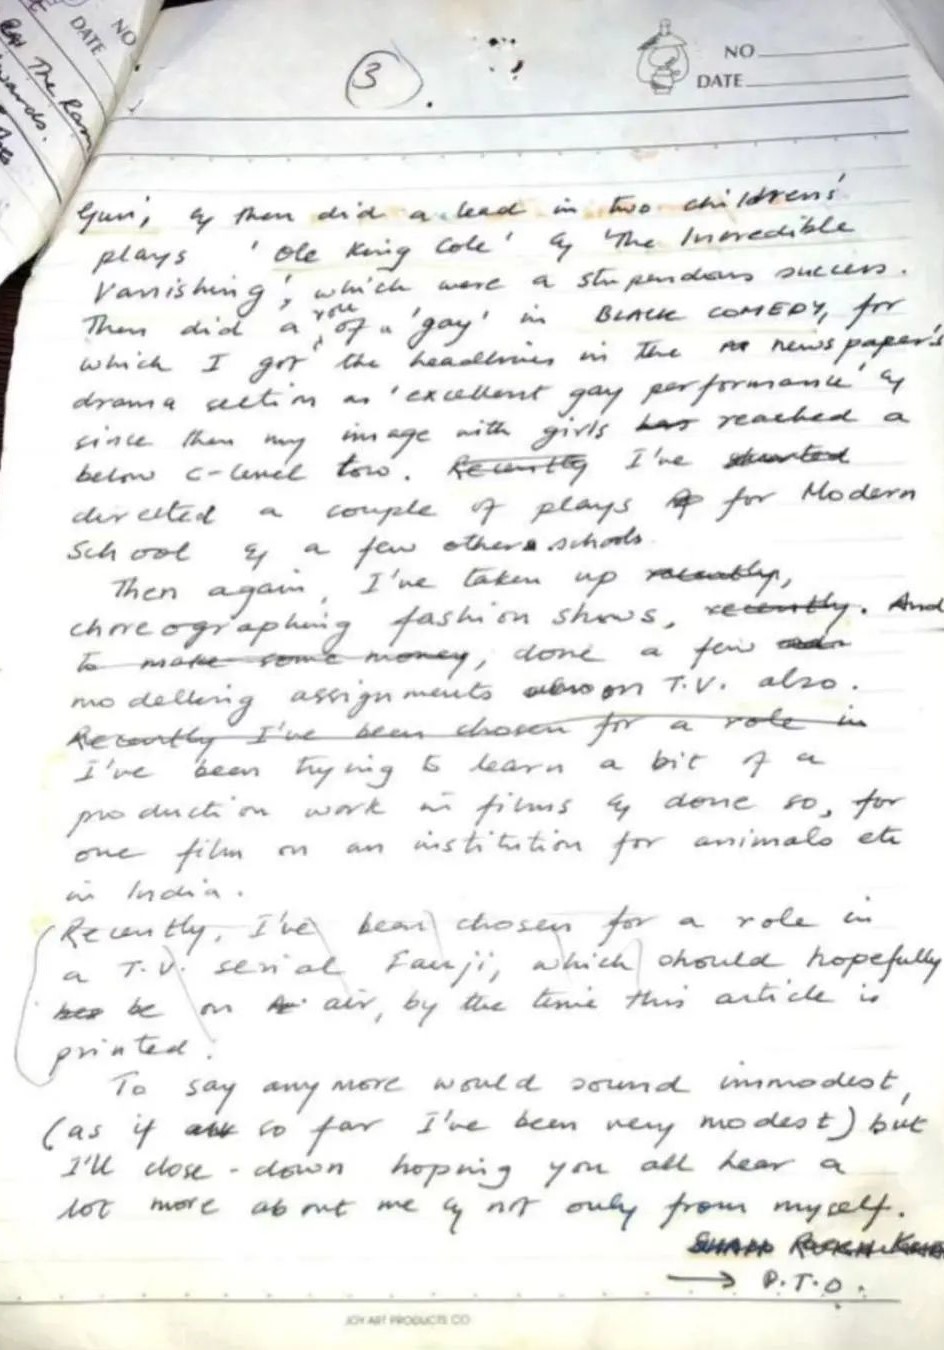 NO
DATE
The Ram
wards.
3
NO
DATE
Gun', & then did a lead in two childrens'
plays 'Ole King Cole' & 'The Incredible
Vanishing', which were a stupendous success.
Then did a role of a 'gay' in BLACK COMEDY, for
which I got the headlines in the news paper's
drama section as 'excellent gay performance' &
since then my image with girls has reached a
below C-level low. Recently I've started
directed a couple of plays for Modern
School & a few other schools
Then again, I've taken up recently,
choreographing fashion shows, recently. And
to make some money, done a few
modelling assignments on T.V. also.
Recently I've been chosen for a role in
I've been trying to learn a bit of a
production work in films & done so, for
one film on an institution for animals etc
in India.
(Recently, I've been chosen for a role in
a T.V. serial Fauji, which should hopefully
be on air, by the time this article is
printed.
To say any more would sound immodest,
(as if all so far I've been very modest) but
I'll close-down hoping you all hear a
lot more about me & not only from myself.
SHAH RUKH KHAN
→ P.T.O.
JOY ART PRODUCTS CO